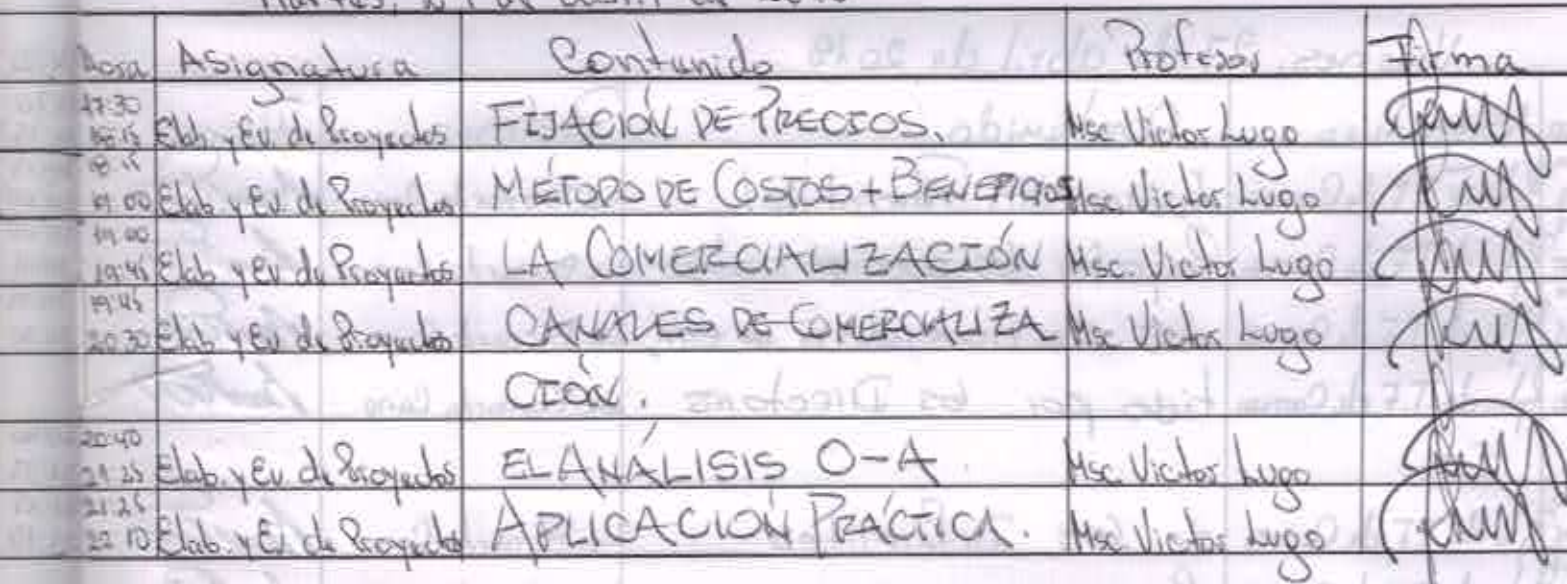 Martes,
Hora Asignatura Contenido Profesor Firma
17:30
18:15 Elab. y Ev. de Proyectos FIJACIÓN DE PRECIOS. Msc Victor Lugo
18:15
19:00 Elab. y Ev. de Proyectos MÉTODO DE COSTOS + BENEFICIOS Msc. Victor Lugo
19:00
19:45 Elab. y Ev. de Proyectos LA COMERCIALIZACIÓN Msc. Victor Lugo
19:45
20:30 Elab. y Ev. de Proyectos CANALES DE COMERCIALIZA Msc Victor Lugo
CIÓN.
20:40
21:25 Elab. y Ev. de Proyectos EL ANÁLISIS O-A. Msc. Victor Lugo
21:25
22:10 Elab. y Ev. de Proyectos APLICACIÓN PRÁCTICA. Msc. Victor Lugo